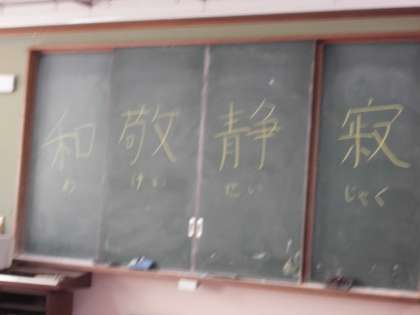 和敬静寂
わ けい せい じゃく